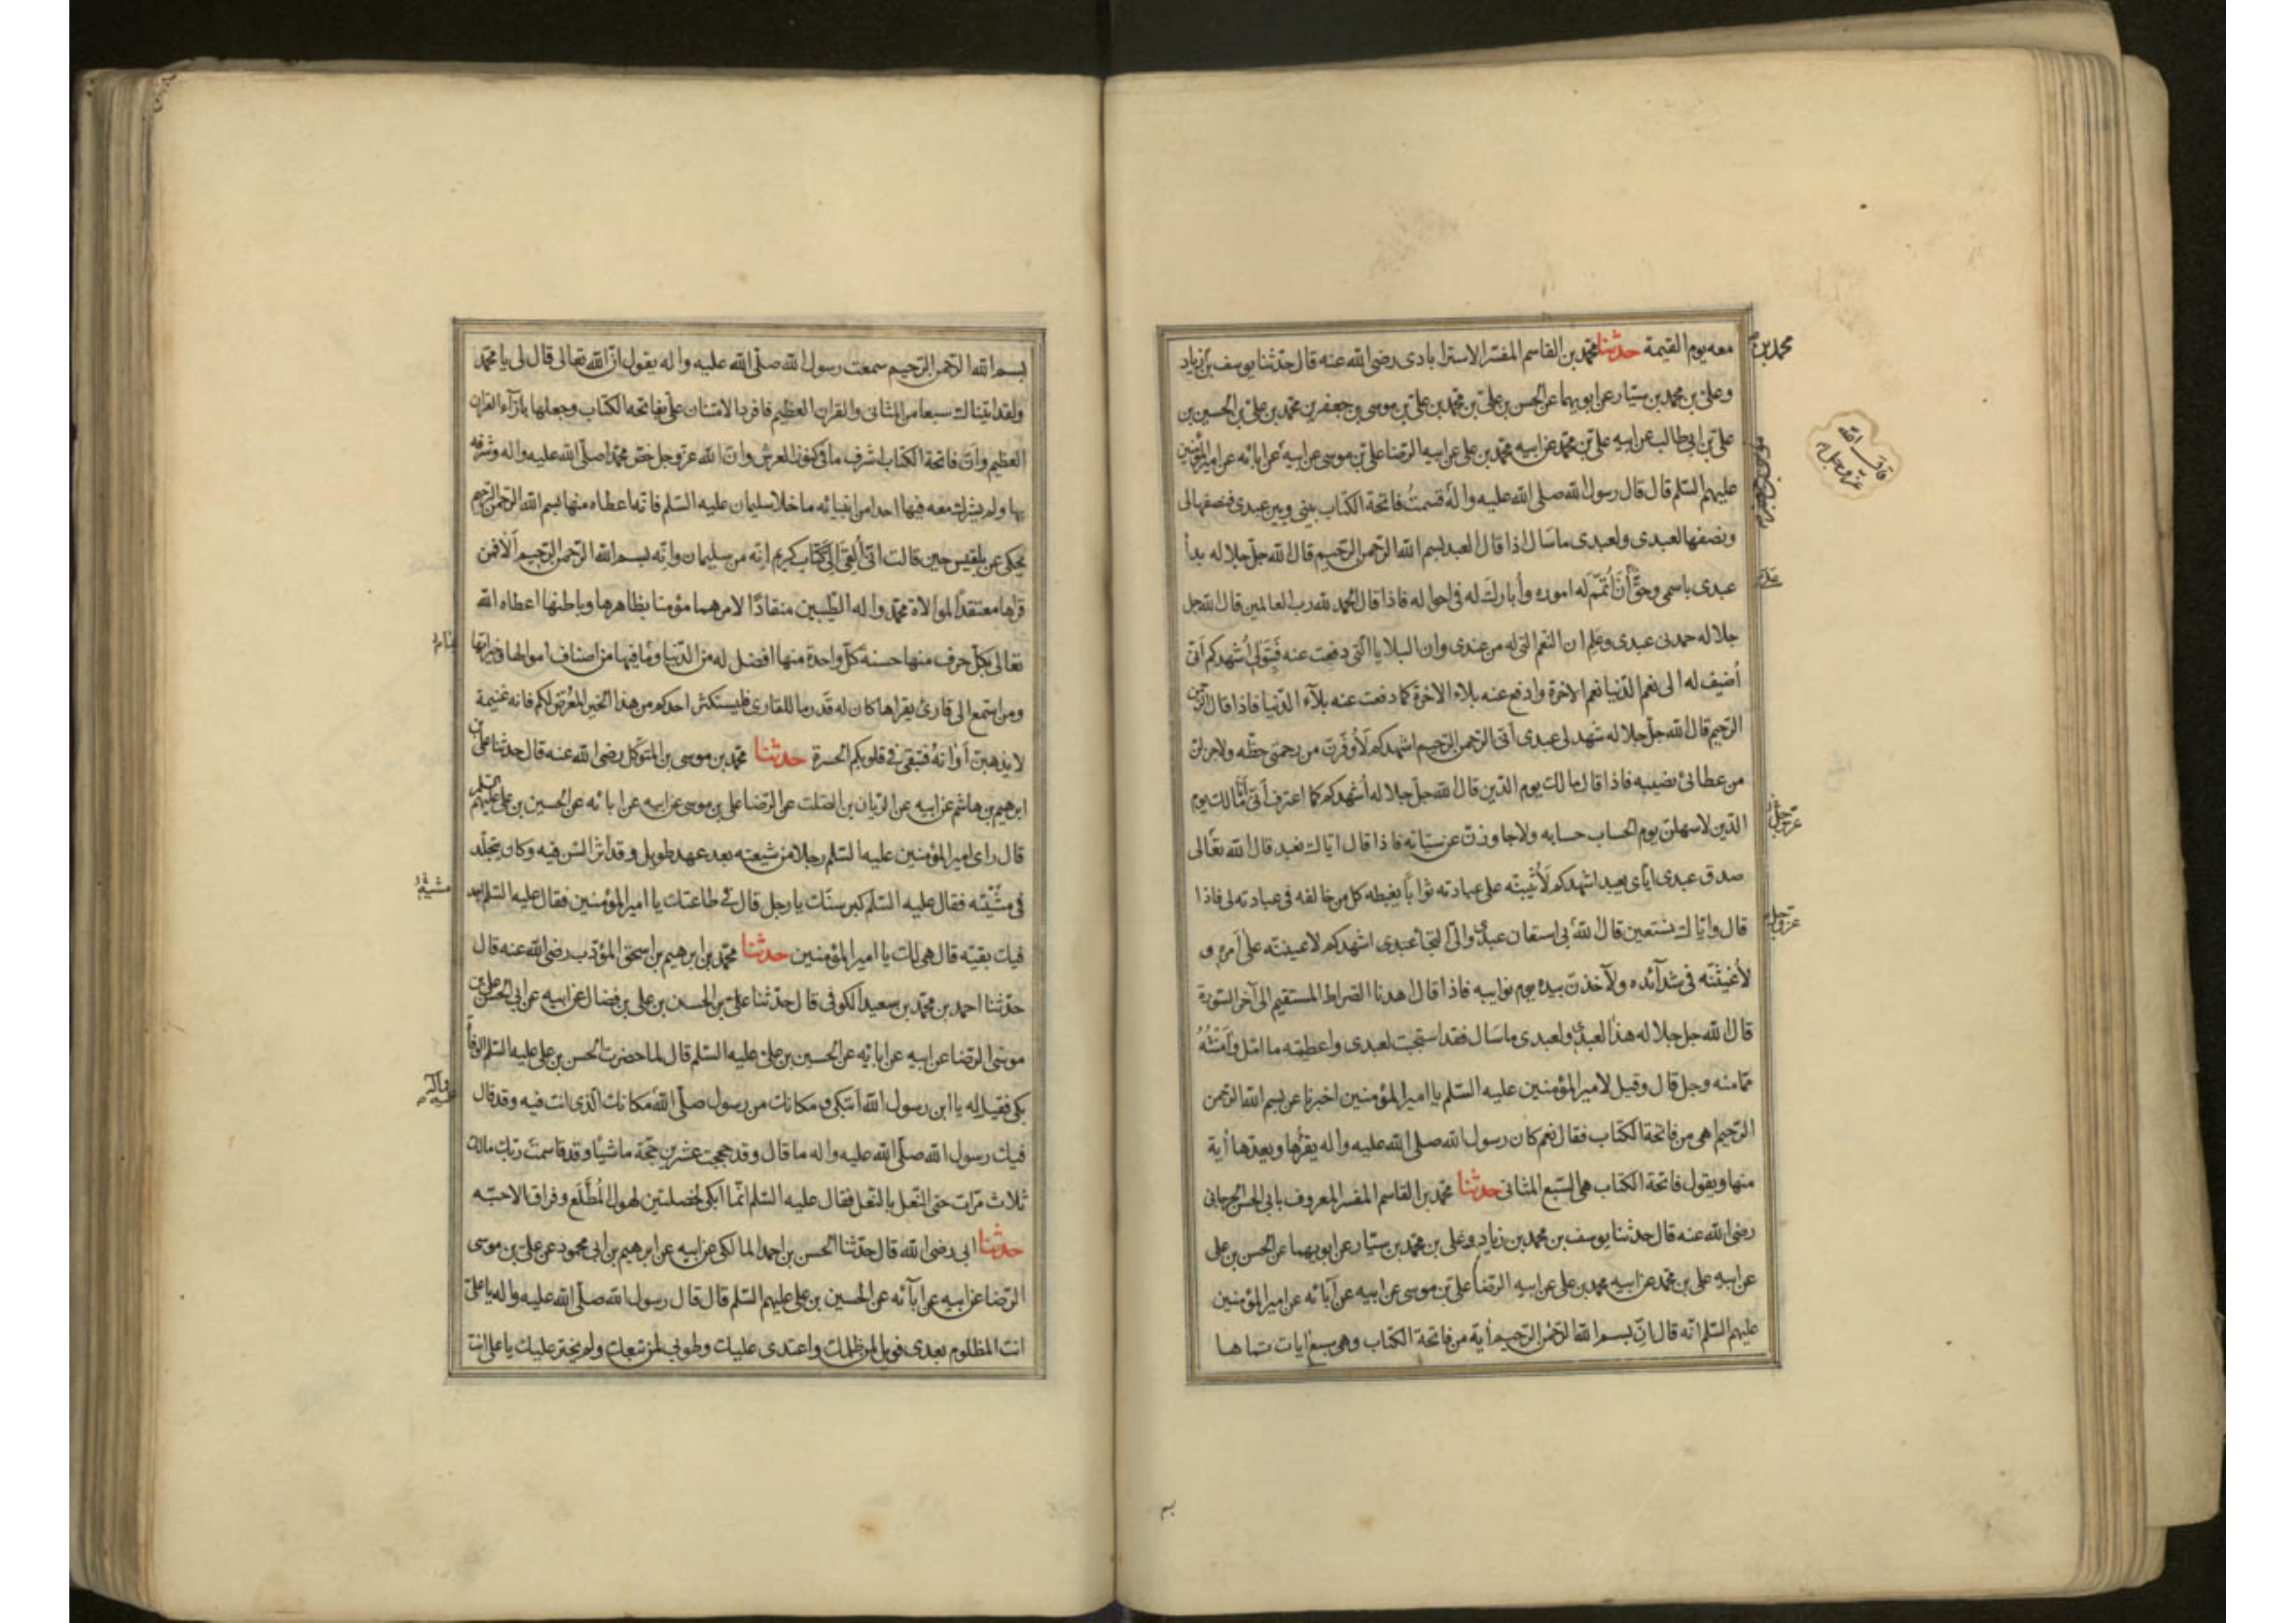 معه يوم القيمة حدثنا محمد بن القاسم المفسر الاسترابادى رضى الله عنه قال حدثنا يوسف بن زياد
محمد بن
وعلى بن محمد بن سيّار عن ابويهما عن الحسن بن على بن محمد بن على بن موسى بن جعفر بن محمد بن على بن الحسين بن
على بن ابى طالب عن ابيه على بن محمد عن ابيه محمد بن على عن ابيه الرضا على بن موسى عن ابيه عن ابائه عن امير المؤمنين
عليهم السّلم قال قال رسول الله صلى الله عليه واله قسمتُ فاتحة الكتاب بينى وبين عبدى فنصفها لى
قال الله عز وجل
ونصفها لعبدى ولعبدى ما سَال اذا قال العبد بسم الله الرحمن الرحيم قال الله جل جلاله بدأ
عبدى باسمى وحقٌّ أن أُتَمّمَ له اموره وأبارك له فى احواله فاذا قال الحمد لله رب العالمين قال الله جل
جلاله حمدنى عبدى وعَلِم ان النعم التى له من عندى وان البلايا التى دفعت عنه فبتَولى أُشهدكم أنى
أُضيف له الى نعم الدّنيا نعم الاخرة وادفع عنه بلاء الاخرة كما دفعت عنه بلآء الدّنيا فاذا قال الرحمن
الرّحيم قال الله جلّ جلاله شهد لى عبدى أنى الرحمن الرحيم اشهدكم لَأُوَفّرنّ من رحمتى حظّه ولاجزلن
من عطائى نصيبه فاذا قال مالك يوم الدّين قال الله جل جلاله أُشهدكم كما اعترف أنى أنَا مالك يوم
عزّ وجلّ
الدّين لاسهلنّ يوم الحساب حسابه ولاجاوزنّ عن سيّاته فاذا قال ايّاك نعبد قال الله تعالى
صدق عبدى ايّاى يعبد اشهدكم لَأُثيبنّه على عبادته ثوابًا يغبطه كل من خالفه فى عبادته لى فاذا
عزّ وجلّ
قال وايّاك نستعين قال الله بى استعان عبدى والىّ التجأ عبدى اشهدكم لاعيننّه على أمره و
لأُغيثَنّه فى شدآئده ولآخذنّ بيده يوم نوايبه فاذا قال اهدنا الصّراط المستقيم الى آخر السّورة
قال الله جل جلاله هذا لعبدى ولعبدى ما سَال فقد استجبت لعبدى واعطيته ما امّل وآمَنْتُهُ
ممّا منه وجل قال وقيل لامير المؤمنين عليه السّلم يا امير المؤمنين اخبرنا عن بسم الله الرحمن
الرّحيم اهى من فاتحة الكتاب فقال نعم كان رسول الله صلى الله عليه واله يقرأها ويعدّها أية
منها ويقول فاتحة الكتاب هى السّبع المثانى حدثنا محمد بن القاسم المفسر المعروف بابى الحسن الجرجانى
رضى الله عنه قال حدثنا يوسف بن محمد بن زياد وعلى بن محمد بن سيّار عن ابويهما عن الحسن بن على
عن ابيه على بن محمد عن ابيه محمد بن على عن ابيه الرّضا على بن موسى عن ابيه عن آبائه عن امير المؤمنين
عليهم السّلم انّه قال انّ بسم الله الرّحمن الرّحيم أية من فاتحة الكتاب وهى سبع ايات تمامها
بسم
بسم الله الرّحمن الرّحيم سمعت رسول الله صلّى الله عليه واله يقول انّ الله تعالى قال لى يا محمّد
ولقد اتيناك سبعا من المثانى والقران العظيم فافرد الامتنان علىّ بفاتحة الكتاب وجعلها بازآء القران
العظيم وانّ فاتحة الكتاب اشرف ما فى كنوز العرش وانّ الله عز وجل خصّ محمّدا صلى الله عليه واله وشرّفه
بها ولم يشرك معه فيها احدا من انبيائه ما خلا سليمان عليه السّلم فانّه اعطاه منها بسم الله الرّحمن الرّحيم
يحكى عن بلقيس حين قالت انّى أُلقى الىّ كتاب كريم انّه من سليمان وانّه بسم الله الرّحمن الرّحيم ألا فمن
قرأها معتقدًا لموالاة محمّد واله الطّيّبين منقادًا لامرهما مؤمنا بظاهرها وباطنها اعطاه الله
تعالى بكلّ حرف منها حسنة كلّ واحدة منها افضل له من الدّنيا وما فيها من اصناف اموالها وخيراتها
ومن استمع الى قارئ يقرأها كان له قدر ما للقارى فليستكثر احدكم من هذا الخير المُعرَض لكم فانه غنيمة
لا يذهبنّ أوانهُ فتبقى فى قلوبكم الحسرة حدثنا محمد بن موسى بن المتوكّل رضى الله عنه قال حدثنا على بن
ابرهيم بن هاشم عن ابيه عن الرّيان بن الصّلت عن الرّضا على بن موسى عن ابيه عن ابائه عن الحسين بن على عليهم السّلم
قال راى امير المؤمنين عليه السّلم رجلا من شيعته بعد عهد طويل وقد اثّر السّن فيه وكان يتجلّد
فى مشيّته فقال عليه السّلم كبر سنّك يا رجل قال فى طاعتك يا امير المؤمنين فقال عليه السّلم اجد
فيك بقيّة قال هى لك يا امير المؤمنين حدثنا محمّد بن ابرهيم بن اسحق المؤدّب رضى الله عنه قال
حدّثنا احمد بن محمّد بن سعيد الكوفى قال حدّثنا على بن الحسن بن على بن فضال عن ابيه عن ابى الحسن على بن
موسى الرّضا عن ابيه عن ابائه عن الحسين بن على عليه السّلم قال لما حضرت الحسن بن على عليه السّلم الوفاة
بكى فقيل له يا ابن رسول الله أتبكى ومكانك من رسول صلّى الله مكانك الّذى انت فيه وقد قال
عليه وآله
فيك رسول الله صلّى الله عليه واله ما قال وقد حججت عشرين حجّة ماشيًا وقد قاسمت ربّك مالك
ثلاث مرّات حتى النّعل بالنّعل فقال عليه السّلم انّما ابكى لخصلتين لهول المُطَّلَع وفراق الاحبّه
حدثنا ابى رضى الله قال حدّثنا الحسن بن احمد المالكى عن ابيه عن ابرهيم بن ابى محمود عن على بن موسى
الرّضا عن ابيه عن ابآئه عن الحسين بن على عليهم السّلم قال قال رسول الله صلّى الله عليه واله يا علىّ
انت المظلوم بعدى فويل لمن ظلمك واعتدى عليك وطوبى لمن تبعك ولم يختر عليك يا على انت